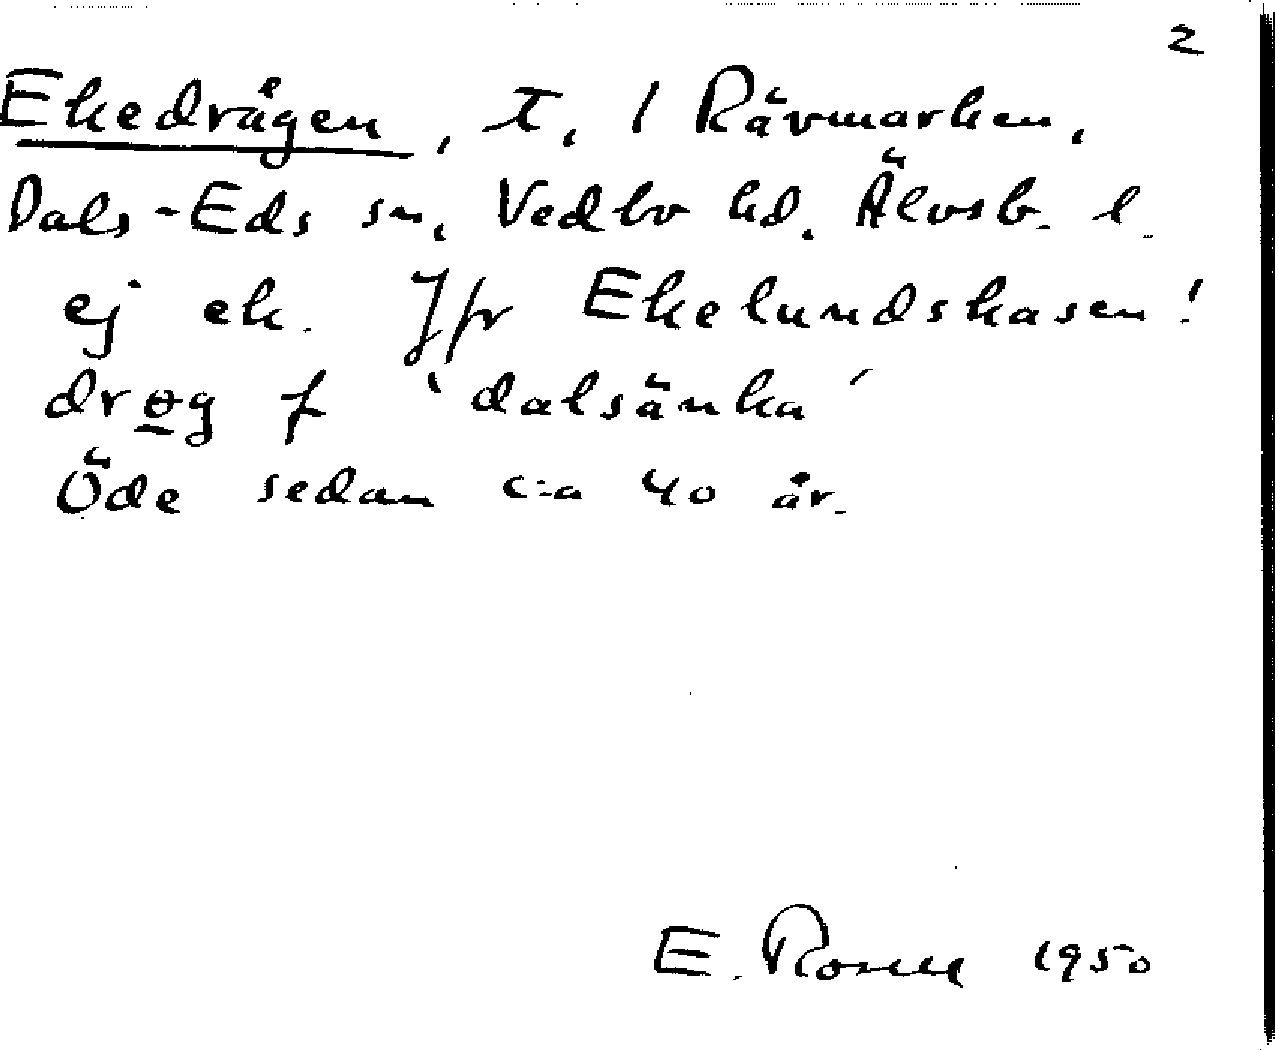 2
Ekedrågen, t. 1 Rävmarken,
Dals-Eds sn, Vedbo hd. Älvsb. l.
ej ek. Jfr Ekelundskasen!
drøg f 'dalsänka'
Öde sedan c:a 40 år.
E. Rosell 1950